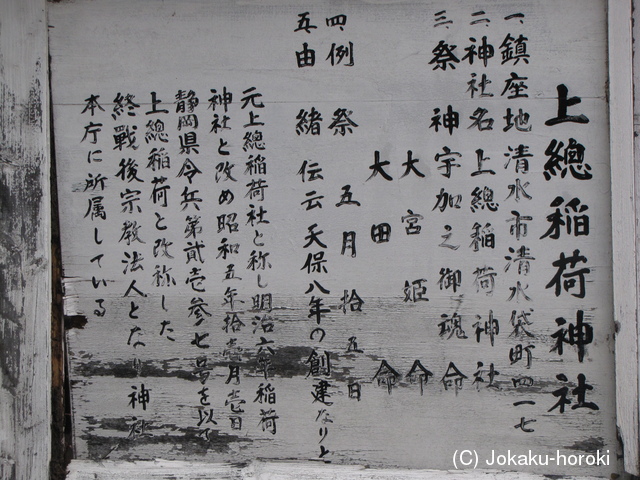 上總稲荷神社
一、鎮座地 清水市清水袋町四一七
二、神社名 上總稲荷神社
三、祭神 宇加之御魂命
大宮姫命
大田命
四、例祭 五月拾五日
五、由緒 伝云天保八年の創建なりと
元上總稲荷社と称し明治六年稲荷
神社と改め昭和五年拾壱月壱日
静岡県令兵第貳壱参七号を以て
上總稲荷と改称した
終戦後宗教法人となり神社
本庁に所属している
(C) Jokaku-horoki